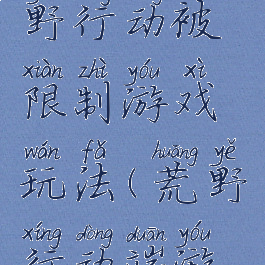 野行动被
xiàn zhì yóu xì
限制游戏
wán fǎ huāng yě
玩法(荒野
xíng dòng duān yóu
行动端游